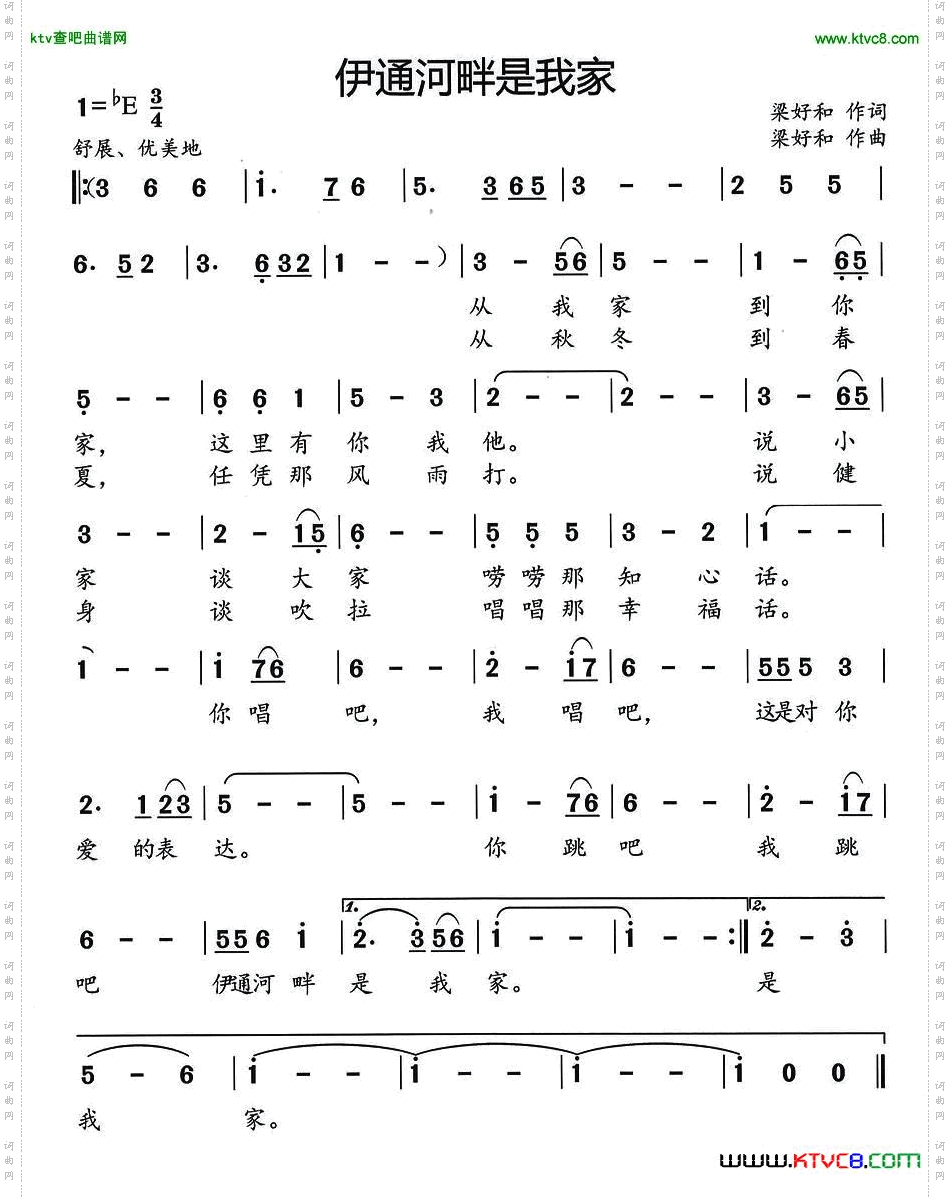 ktv查吧曲谱网 www.ktvc8.com
伊通河畔是我家
1=♭E 3/4
梁好和 作词
舒展、优美地 梁好和 作曲
‖:(3 6 6 | i· 7 6 | 5· 3 6 5 | 3 - - | 2 5 5 |
6· 5 2 | 3· 6 3 2 | 1 - - ) | 3 - 5 6 | 5 - - | 1 - 6 5 |
从 我 家 到 你
从 秋 冬 到 春
5 - - | 6 6 1 | 5 - 3 | 2 - - | 2 - - | 3 - 6 5 |
家, 这 里 有 你 我 他。 说 小
夏, 任 凭 那 风 雨 打。 说 健
3 - - | 2 - 1 5 | 6 - - | 5 5 5 | 3 - 2 | 1 - - |
家 谈 大 家 唠 唠 那 知 心 话。
身 谈 吹 拉 唱 唱 那 幸 福 话。
1 - - | i 7 6 | 6 - - | 2 - i 7 | 6 - - | 5 5 5 3 |
你 唱 吧, 我 唱 吧, 这是对 你
2· 1 2 3 | 5 - - | 5 - - | i - 7 6 | 6 - - | 2 - i 7 |
爱 的表 达。 你 跳 吧 我 跳
1. 2.
6 - - | 5 5 6 i | 2· 3 5 6 | i - - | i - - :‖ 2 - 3 |
吧 伊通河 畔 是 我 家。 是
5 - 6 | i - - | i - - | i - - | i 0 0 ‖
我 家。
www.KTVC8.COM